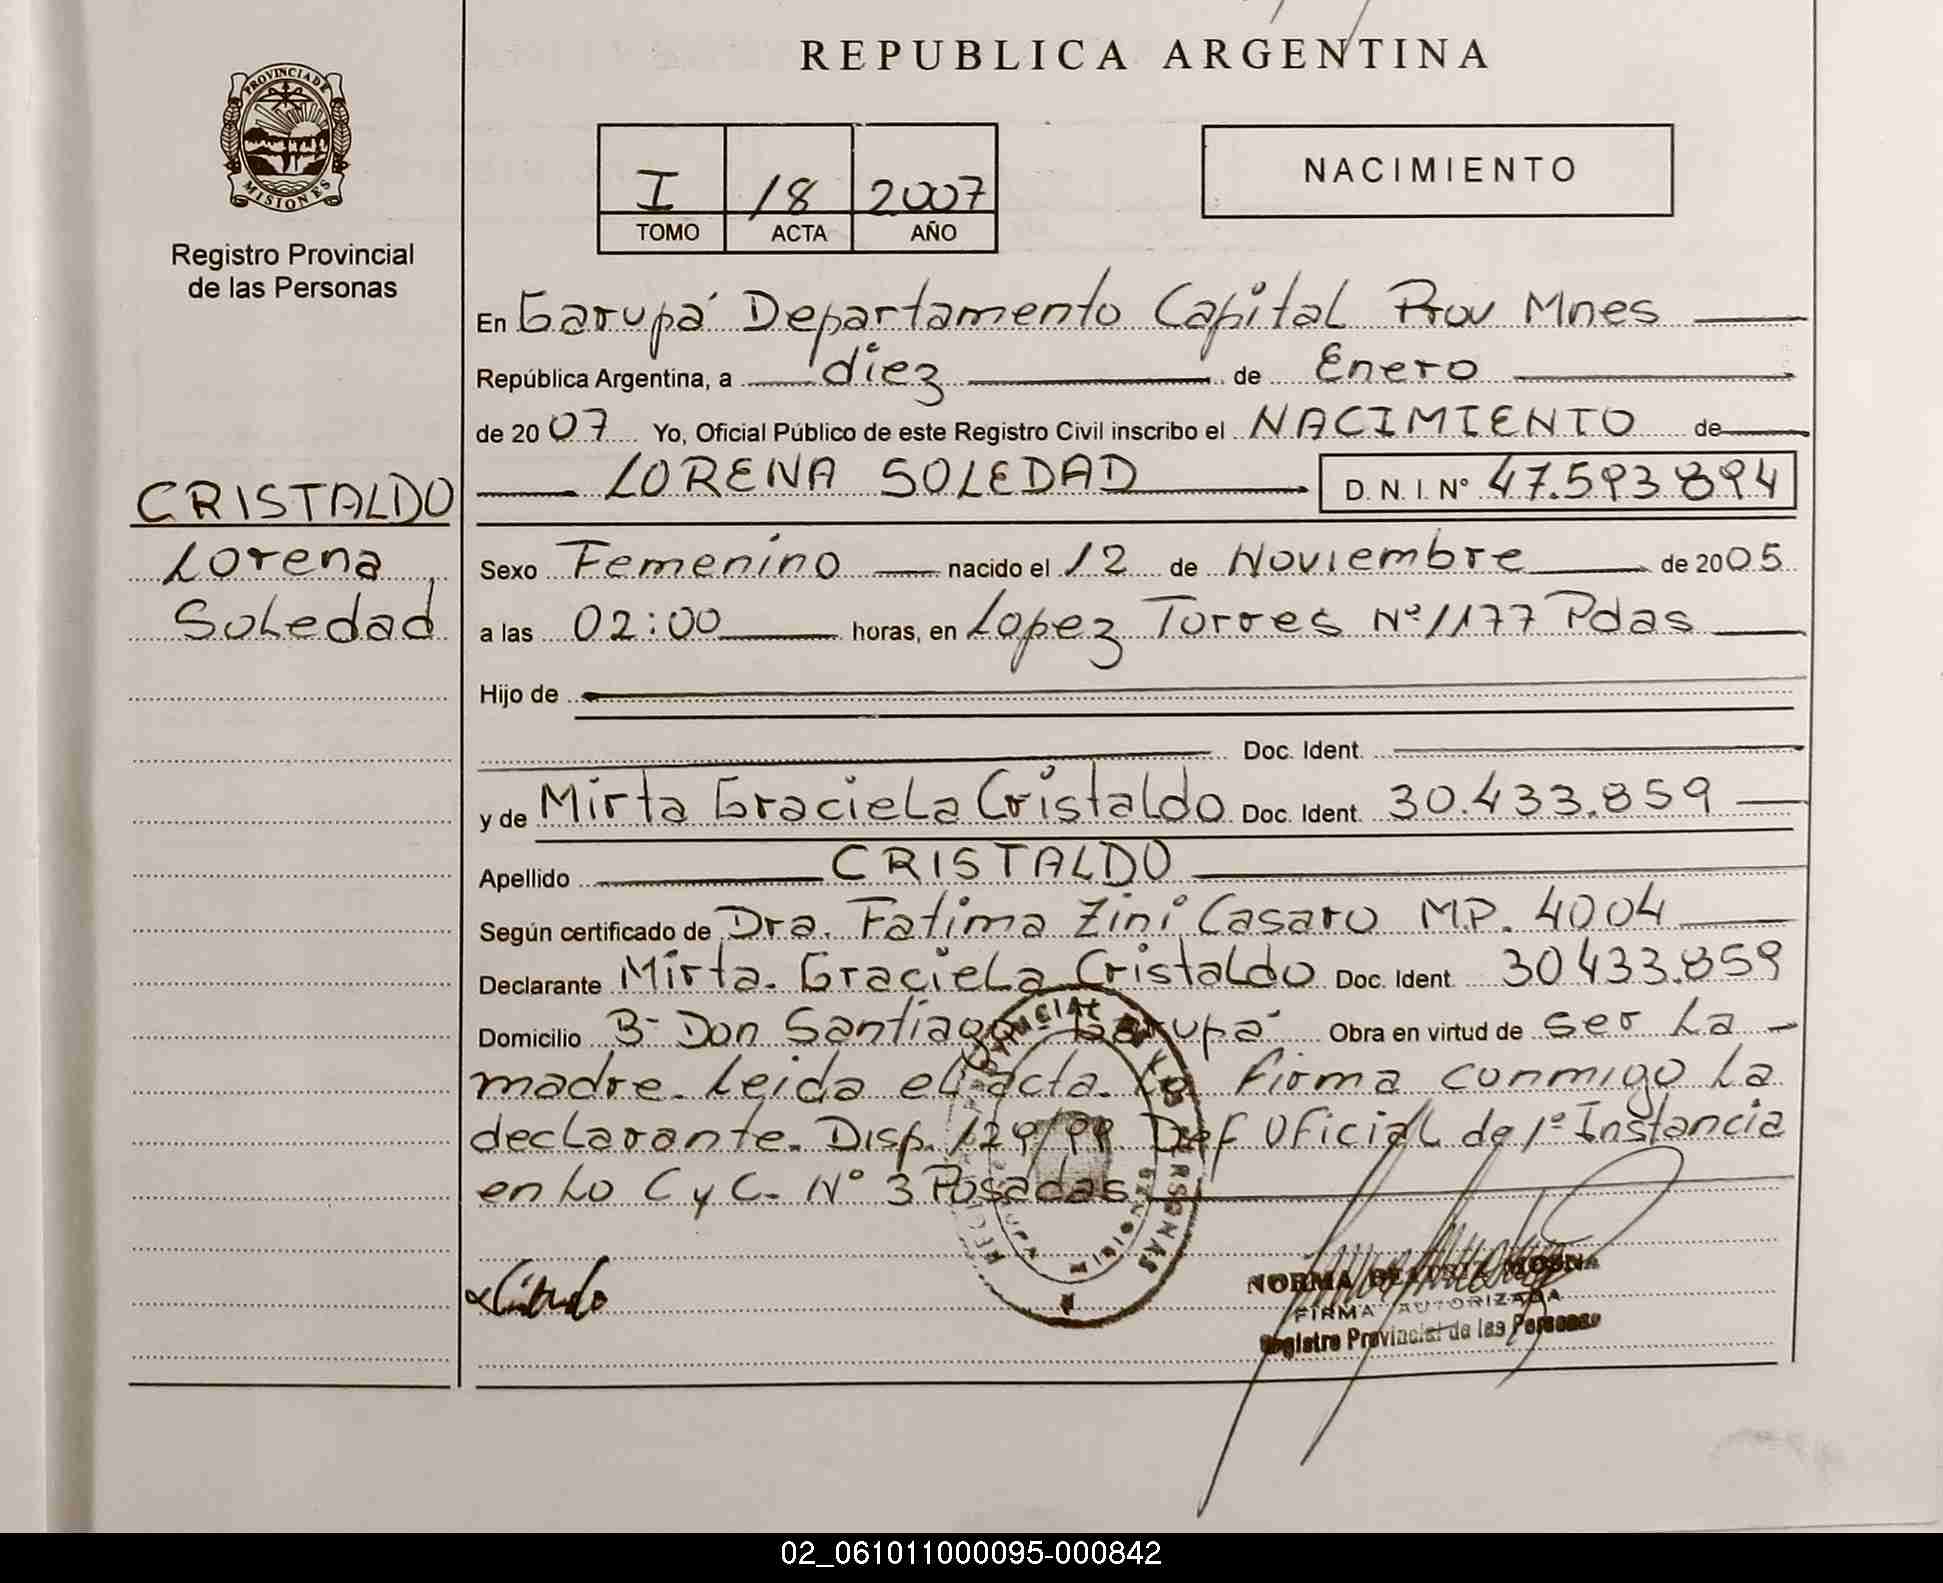 REPUBLICA ARGENTINA
PROVINCIA DE
MISIONES
Registro Provincial
de las Personas
I 18 2007
TOMO ACTA AÑO
NACIMIENTO
En Garupá Departamento Capital Prov Mnes
República Argentina, a diez de Enero
de 2007 Yo, Oficial Público de este Registro Civil inscribo el NACIMIENTO de
LORENA SOLEDAD D. N. I. Nº 47.593.894
CRISTALDO
Lorena
Soledad
Sexo Femenino nacido el 12 de Noviembre de 2005
a las 02:00 horas, en Lopez Torres Nº 1177 Pdas
Hijo de
Doc. Ident.
y de Mirta Graciela Cristaldo Doc. Ident. 30.433.859
Apellido CRISTALDO
Según certificado de Dra. Fatima Zini Casaro M.P. 4004
Declarante Mirta. Graciela Cristaldo Doc. Ident. 30433.859
Domicilio Bº Don Santiago Garupá Obra en virtud de ser la
madre. Leida el acta. La firma conmigo la
declarante. Disp. 129/99 Def Oficial de 1º Instancia
en lo C y C. Nº 3 Posadas
NORMA BEATRIZ
FIRMA AUTORIZADA
Registro Provincial de las Personas
02_061011000095-000842